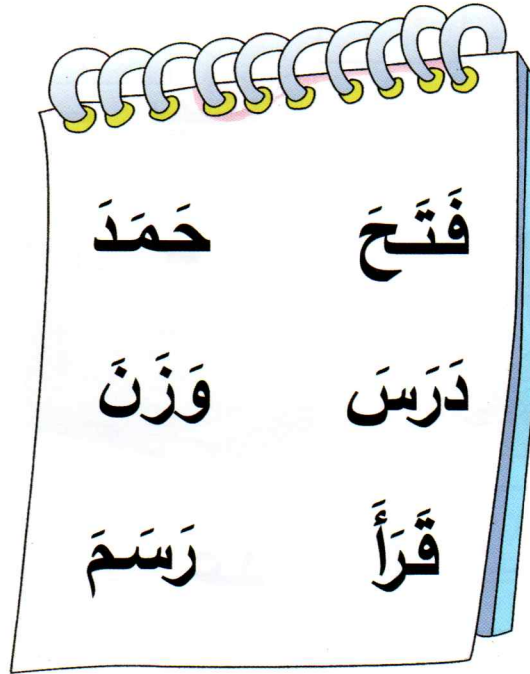 فَتَحَ حَمَدَ
دَرَسَ وَزَنَ
قَرَأَ رَسَمَ